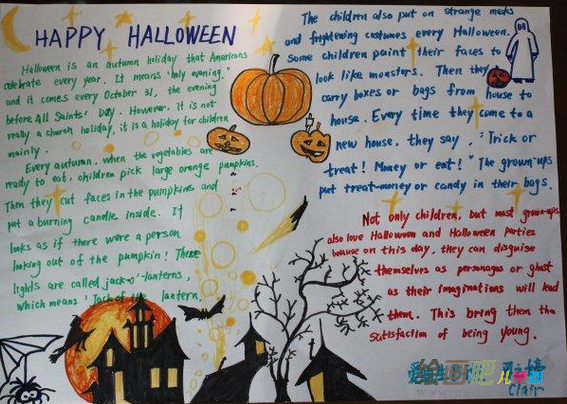 HAPPY HALLOWEEN
Halloween is an autumn holiday that Americans
celebrate every year. It means "holy evening,"
and it comes every October 31, the evening
before All Saints' Day. However, it is not
really a church holiday, it is a holiday for children
mainly.
Every autumn, when the vegetables are
ready to eat, children pick large orange pumpkins.
Then they cut faces in the pumpkins and
put a burning candle inside. It
looks as if there were a person
looking out of the pumpkin! These
lights are called jack-o'-lanterns,
which means "Jack of the lantern.
The children also put on strange masks
and frightening costumes every Halloween.
Some children paint their faces to
look like monsters. Then they
carry boxes or bags from house to
house. Every time they come to a
new house, they say, "Trick or
treat! Money or eat!" The grown-ups
put treat-money or candy in their bags.
Not only children, but most grown-ups
also love Halloween and Halloween parties
because on this day, they can disguise
themselves as personages or ghost
as their imaginations will lead
them. This bring them the
satisfaction of being young.
绘画吧
儿童画
Clair